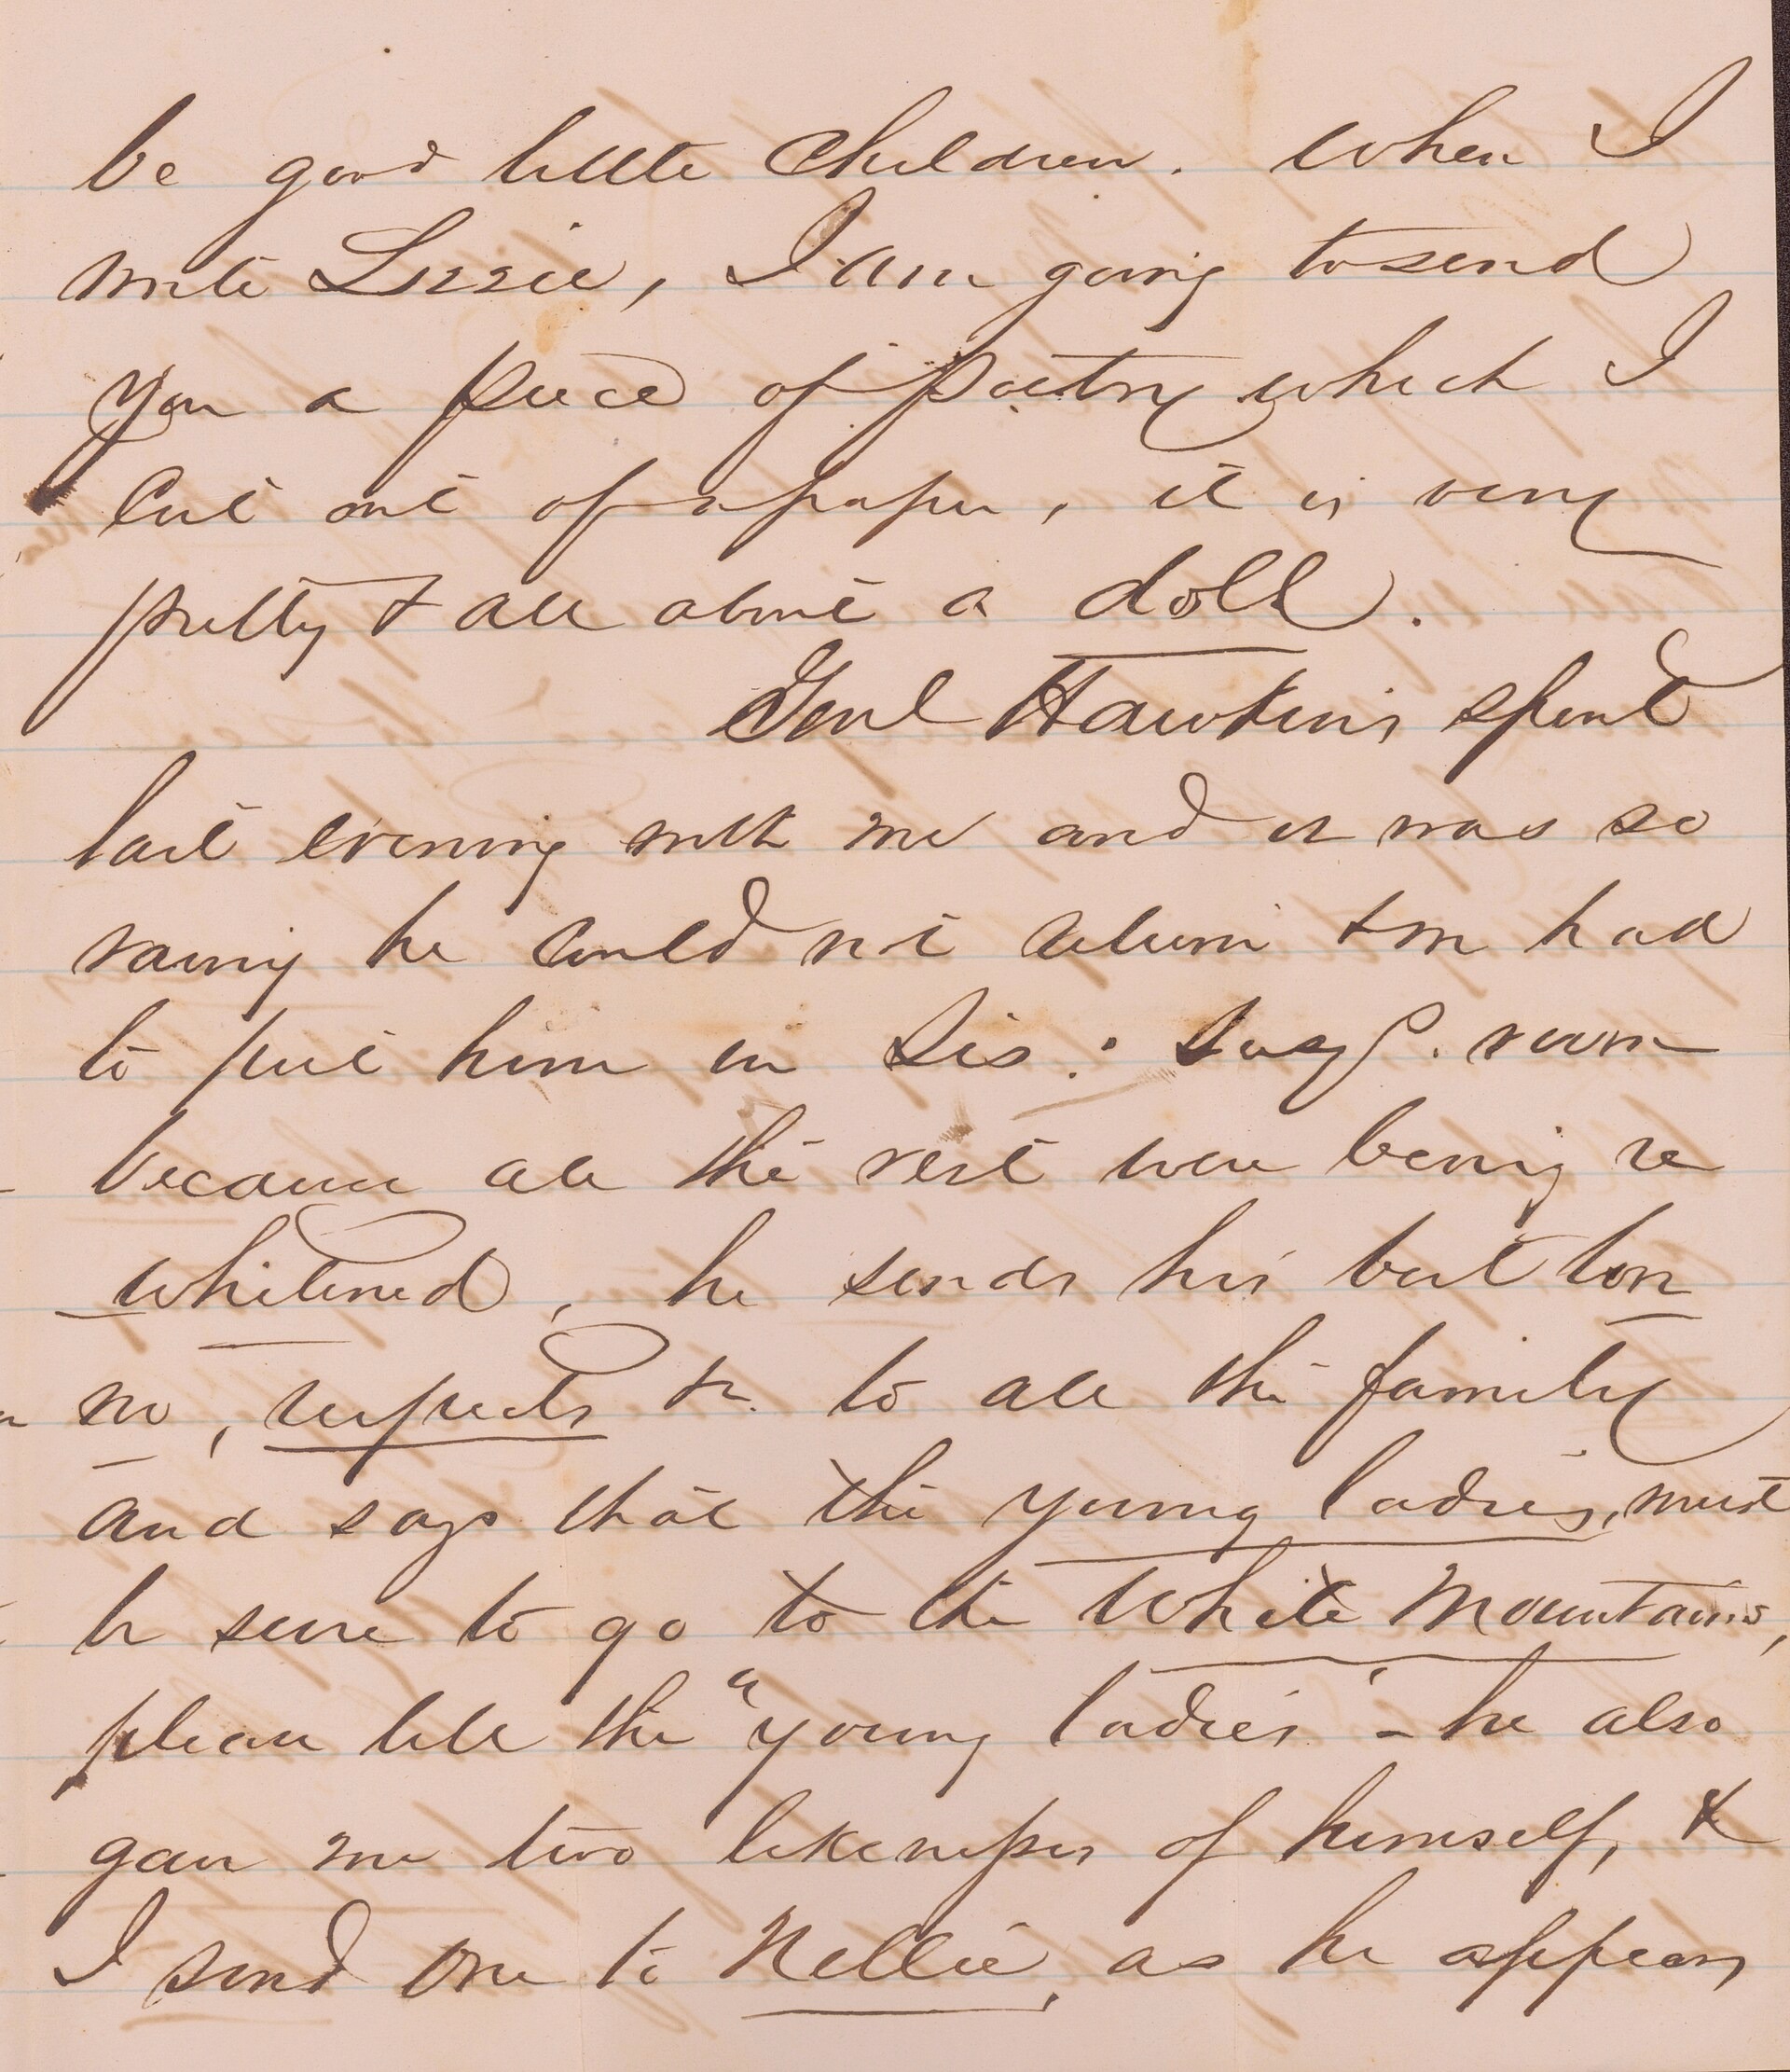 be good little Children. When I
write Lizzie, I am going to send
you a piece of poetry which I
Cut out of a paper, it is very
pretty & all about a doll.
Genl Hawkins spent
last evening with me and it was so
rainy he could not return & we had
to put him in Sis: room
because all the rest were being re
whitened, he sends his best bon
respects &c. to all the family
and says that the young ladies, must
be sure to go to the White Mountains,
please tell the "young ladies" - he also
gave me two likenesses of himself, &
I send one to Nellie, as he appears